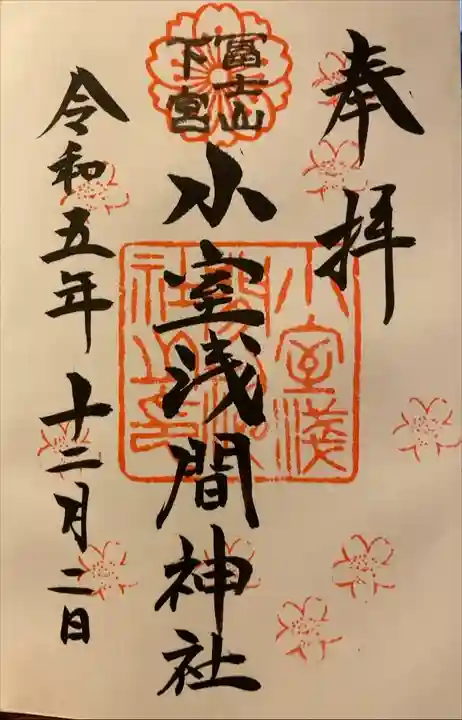 奉拝
冨士山
下宮
小室浅間神社
小室浅
間神
社之印
令和五年 十二月二日